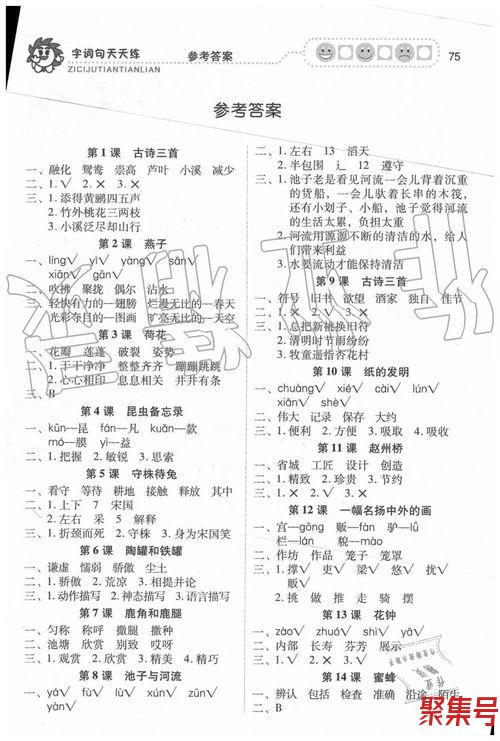 字词句天天练
ZICIJUTIANTIANLIAN
参考答案
75
参考答案
第1课 古诗三首
一、融化 鸳鸯 崇高 芦叶 小溪 减少
二、1.√ 2.× 3.×
三、1.添得黄鹂四五声
2.竹外桃花三两枝
3.小溪泛尽却山行
第2课 燕子
一、líng√ yì√ yàng√ sǎn√
xiān√ gān√
二、吹拂 聚拢 偶尔 沾水
三、轻快有力的—翅膀 烂漫无比的—春天
光彩夺目的—图画 旷亮无比的—天空
第3课 荷花
一、花瓣 莲蓬 破裂 姿势
二、1.干干净净 整整齐齐 蹦蹦跳跳
2.心心相印 息息相关 井井有条
三、B
第4课 昆虫备忘录
一、kūn—昆 fán—凡 kuǎn—款
mó—膜 yì—益
二、1.把握 2.敏锐 3.思索
第5课 守株待兔
一、看守 等待 耕地 接触 相触 宋代
二、1.上下 7 宋国
2.左右 采 5 解释
三、1.折颈而死 2.守株 3.身为宋国笑
第6课 陶罐和铁罐
一、谦虚 懦弱 骄傲 尘土
二、1.骄傲 2.荒凉 3.相提并论
三、1.动作描写 2.神态描写 3.语言描写
第7课 鹿角和鹿腿
一、匀称 称呼 撒腿 撒种
二、池塘 欣赏 别致 哎呀
三、1.观赏 2.欣赏 3.精美 4.精巧
第8课 池子与河流
一、yá√ fù√ lù√ xún√ zhì√
yàn√
二、1.左右 13 滔天
2.半包围 辶 12 遵守
三、1.池子老是看见河流一会儿背着沉重
的货船，一会儿驮着长串的木筏，
还有小划子、小船，池子觉得河流
的生活太累，负担太重
2.河流用源源不断的清洁的水，给人
们带来利益
3.水要流动才能保持清洁
第9课 古诗三首
一、符号 旧书 欲望 酒家 独自 佳节
二、1.√ 2.× 3.×
三、1.总把新桃换旧符
2.清明时节雨纷纷
3.牧童遥指杏花村
第10课 纸的发明
一、chuàng√ xié√ cài√
kuò√ xī√ liú√
二、伟大 记录 保存 大约
三、1.便利 2.方便 3.吸取 4.吸收
第11课 赵州桥
一、省城 工匠 设计 创造
二、1.精致 2.珍贵 3.节约
三、1.√ 2.× 3.√
第12课 一幅名扬中外的画
一、宫—gōng 贩—fàn 驴—lǘ
栏—lán 貌—mào
二、作坊 作品 笼子 笼罩
三、1.撑√ 吏√ 梁√ 扶√
吴√ 桥√ 娄√ 支√
2.挑 放 推 走 骑 摆
第13课 花钟
一、zào√ zhuó√ shì√ dù√
二、内部 长寿 芬芳 展示
三、1.√ 2.× 3.√
第14课 蜜蜂
一、辨认 包括 检查 准确 沿途 陌生
二、B
聚集号